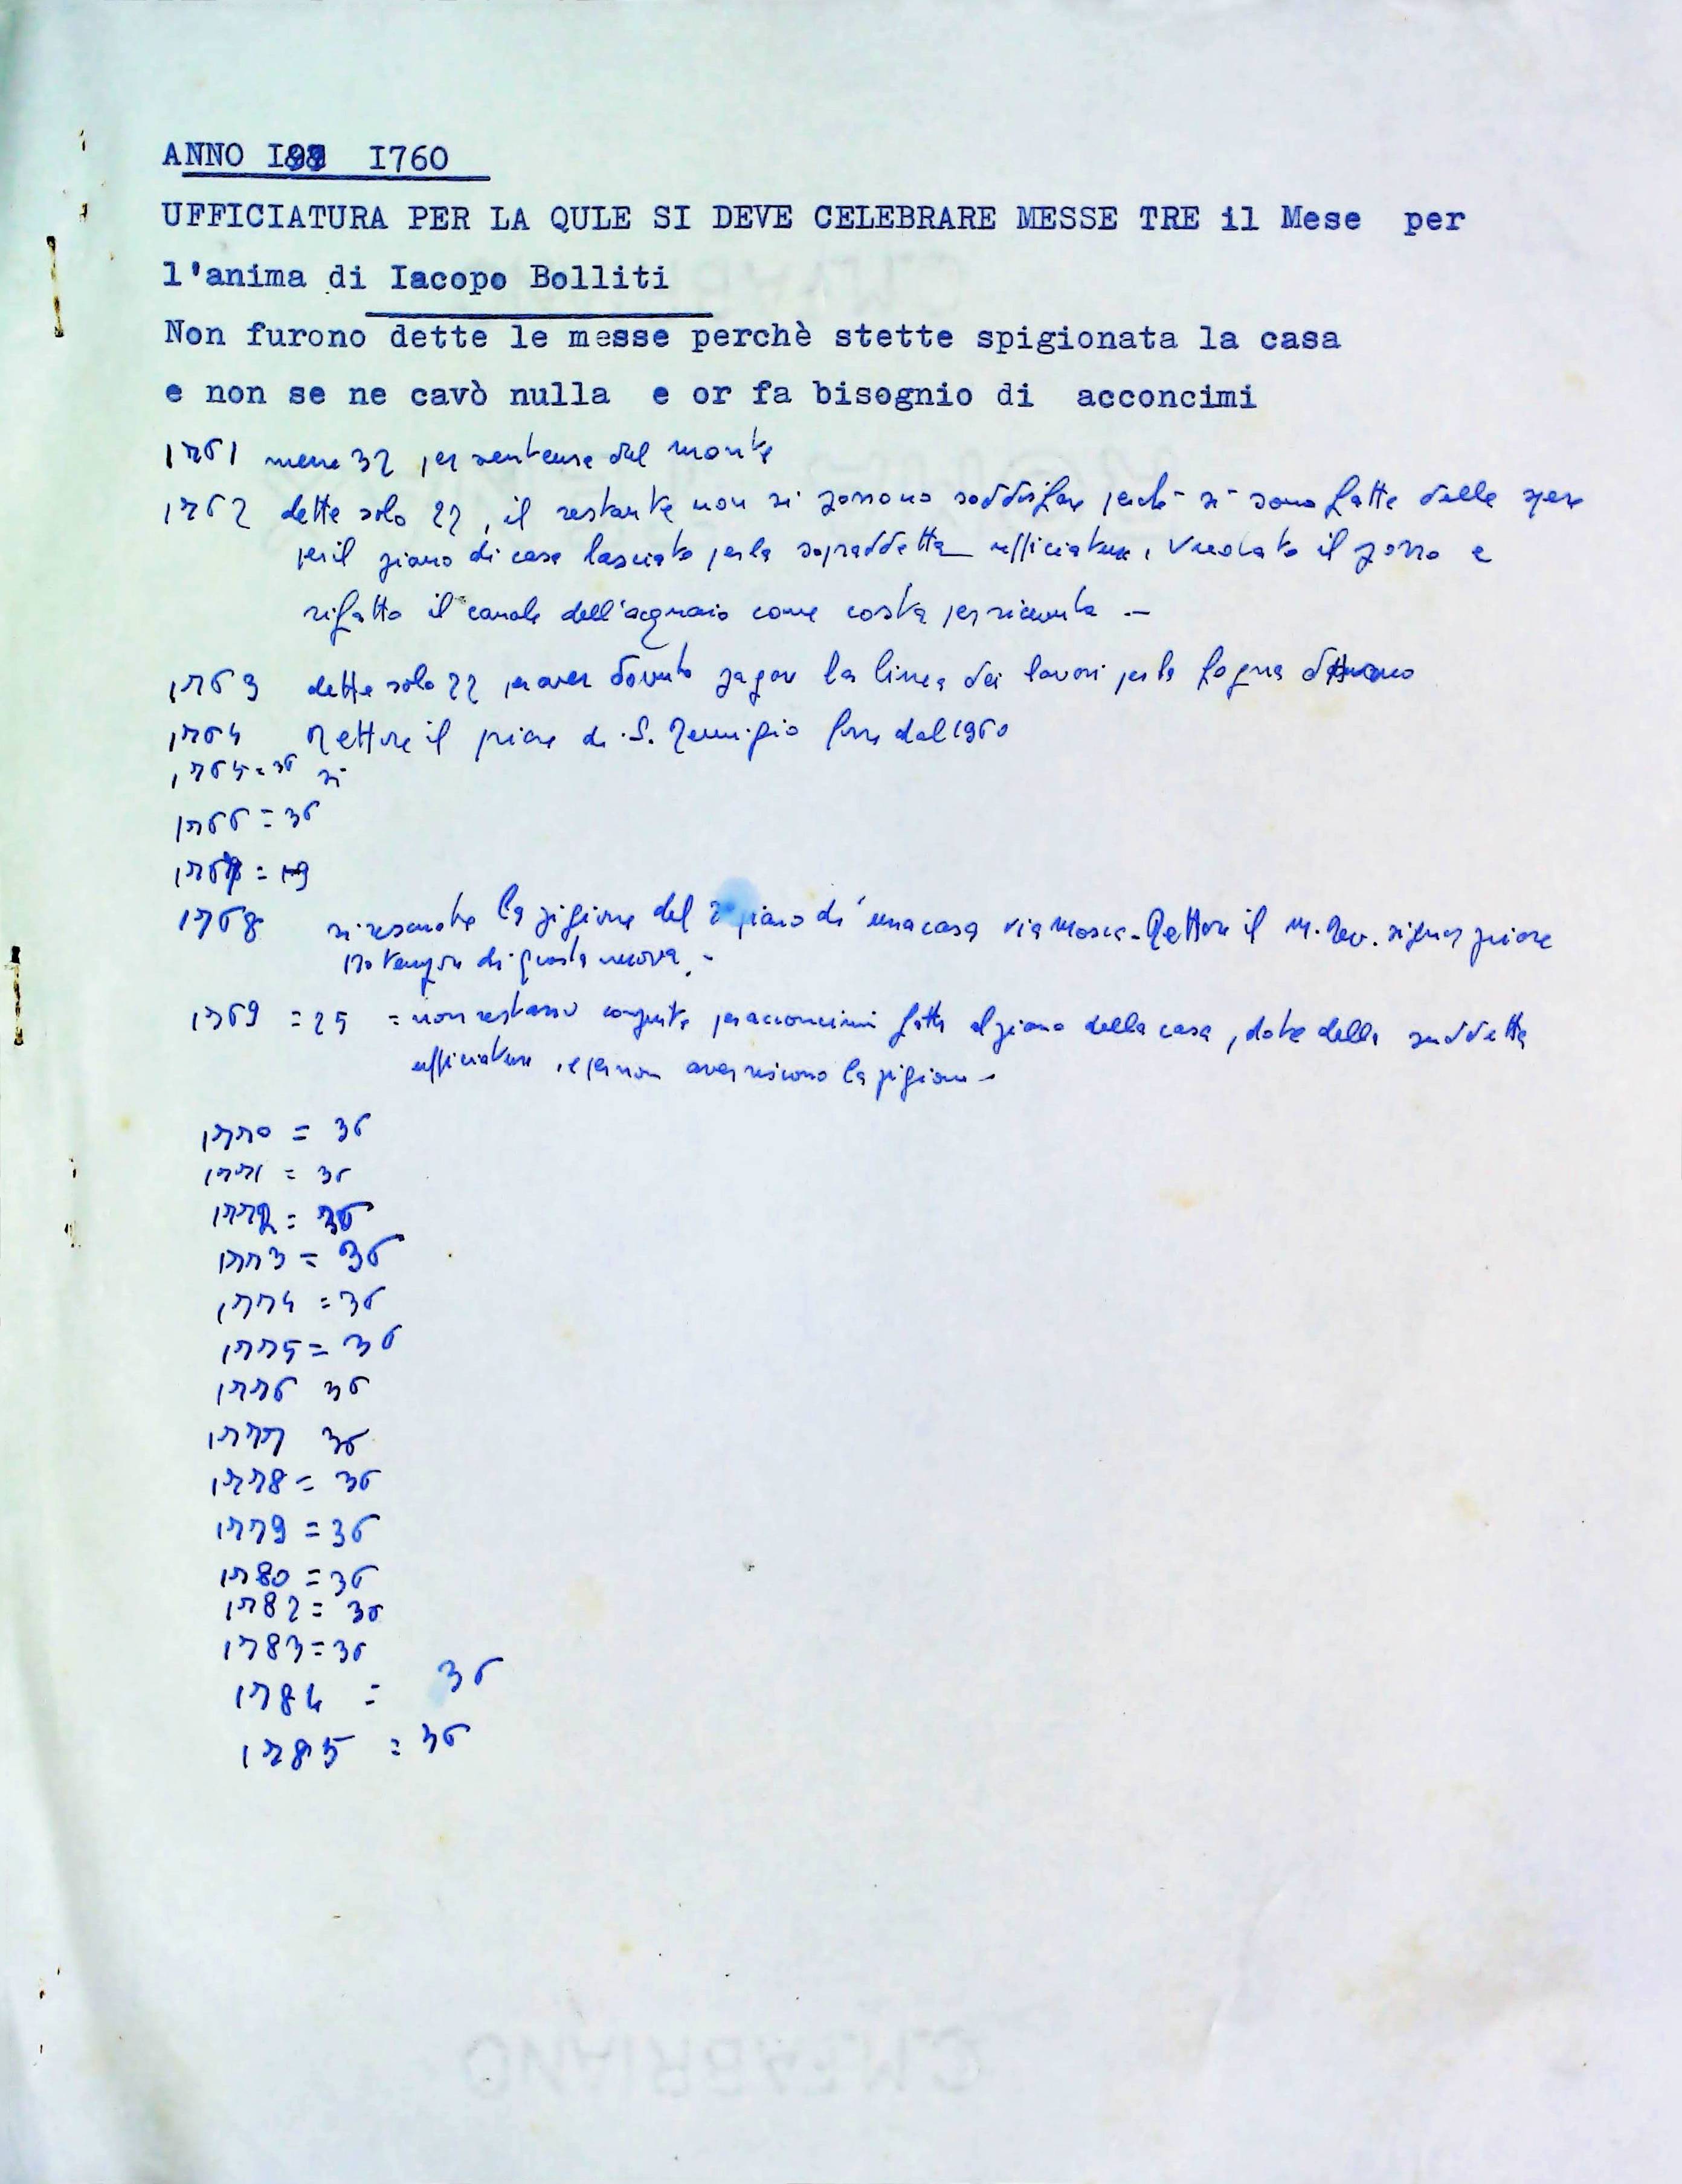 ANNO I760
UFFICIATURA PER LA QULE SI DEVE CELEBRARE MESSE TRE il Mese per
l'anima di Iacopo Bolliti
Non furono dette le messe perchè stette spigionata la casa
e non se ne cavò nulla e or fa bisognio di acconcimi
1761 messe 32 per sentenza del monte
1762 dette solo 22, il restante non si possono soddisfare perchè si sono fatte delle spese
per il piano di casa lasciato per la sopraddetta ufficiatura, vuotato il pozzo e
rifatto il canale dell'acquaio come costa per ricevuta -
1763 dette solo 22 per aver dovuto pagare la linea dei lavori per la fogna
1764 Rettore il priore di S. Remigio forse dal 1960
1765 = 36 si
1766 = 36
1767 = 19
1768 si riscuote la pigione del 2° piano di una casa via Mosca - Rettore il M. Rev. signor priore
di questa nuova. -
1769 = 25 = non restano compite per acconcimi fatti al piano della casa, dote della suddetta
ufficiatura, e per non aver riscosso la pigione -
1770 = 36
1771 = 36
1772 = 36
1773 = 36
1774 = 36
1775 = 36
1776 36
1777 36
1778 = 36
1779 = 36
1780 = 36
1782 = 36
1783 = 36
1784 = 36
1785 = 36
C.M.FABRIANO